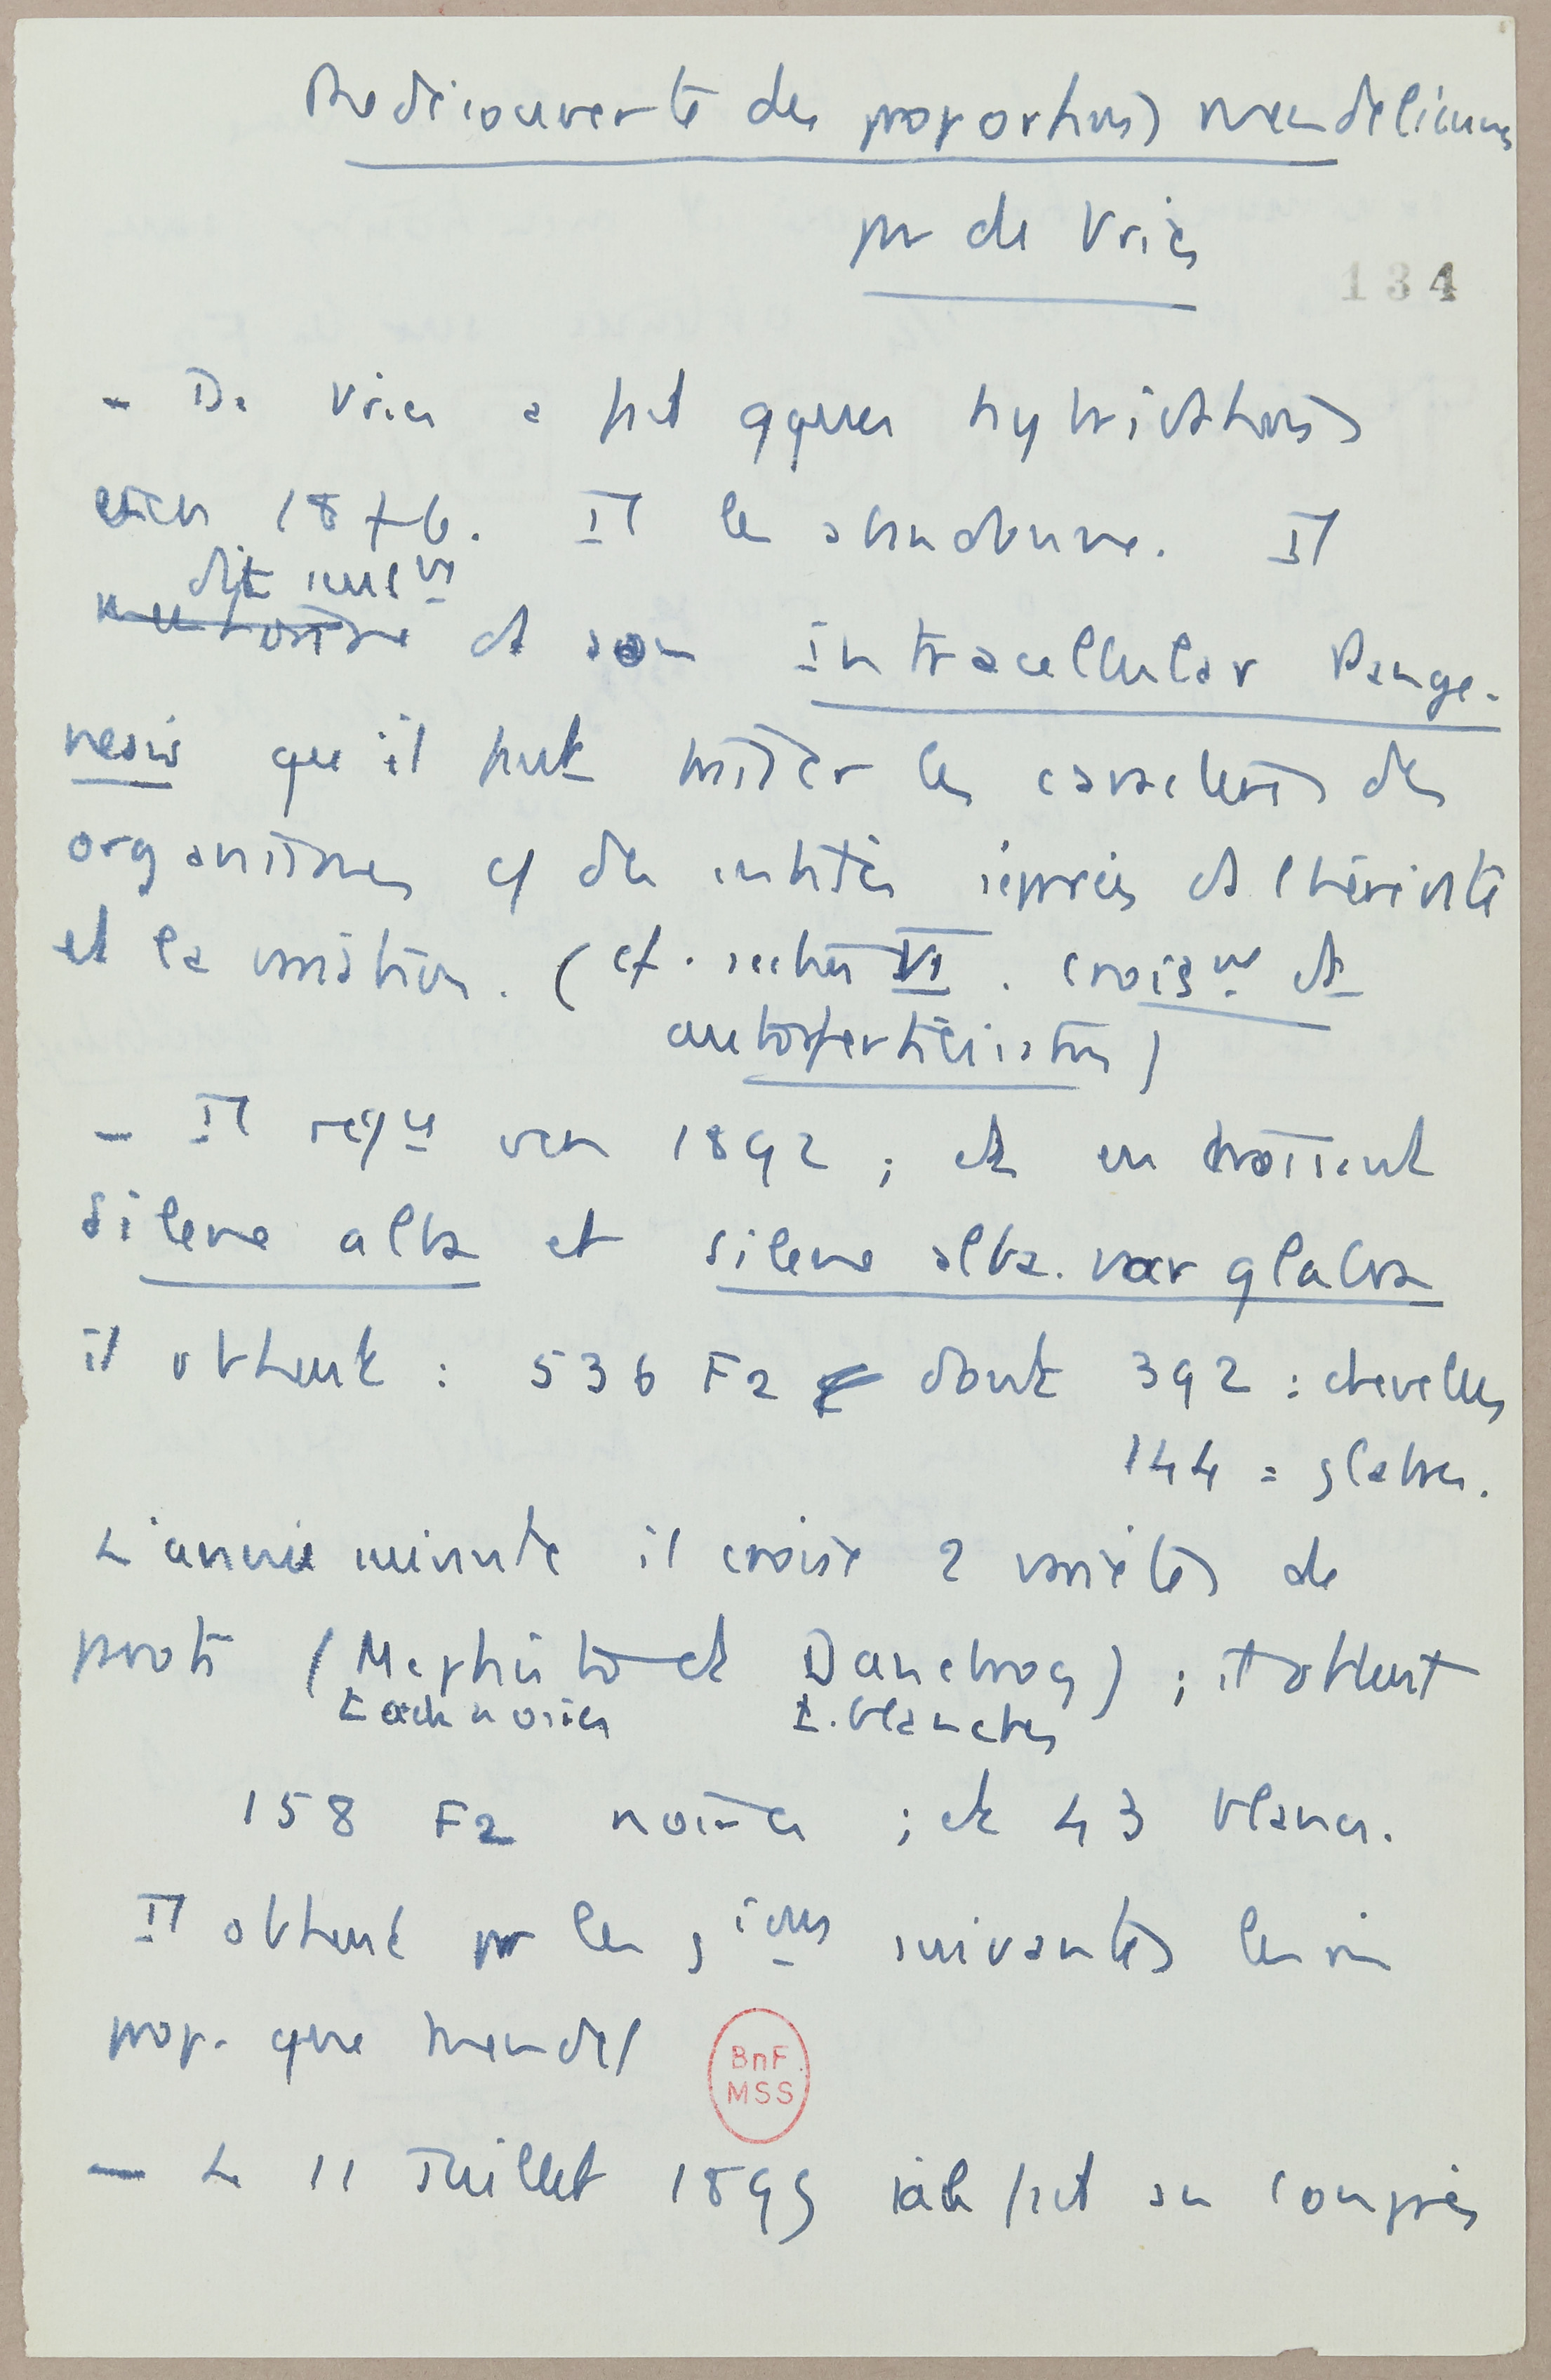 Redécouverte des proportions mendéliennes
par de Vries
134
- De Vries a fait qques hybridations
1876. Il les abandonne. Il
dit
de son Intracellular Pange-
nesis qu'il faut traiter les caractères des
organismes des entités séparées de l'hérédité
et la variation. (cf. section VI. croist et
autofertilisation)
- Il vers 1892 ; et en croisant
Silene alba et silene alba. var glabra
il obtient : 536 F2 dont 392 : chevelus
144 = glabres.
L'année suivante il croise 2 variétés de
pavots (Mephisto et Danebrog) ; il obtient
taches noires t. blanches
158 F2 noires ; et 43 blancs.
Il obtient pr les gions suivantes les m
prop. que Mendel
BnF
MSS
- Le 11 Juillet 1899 fait au congrès